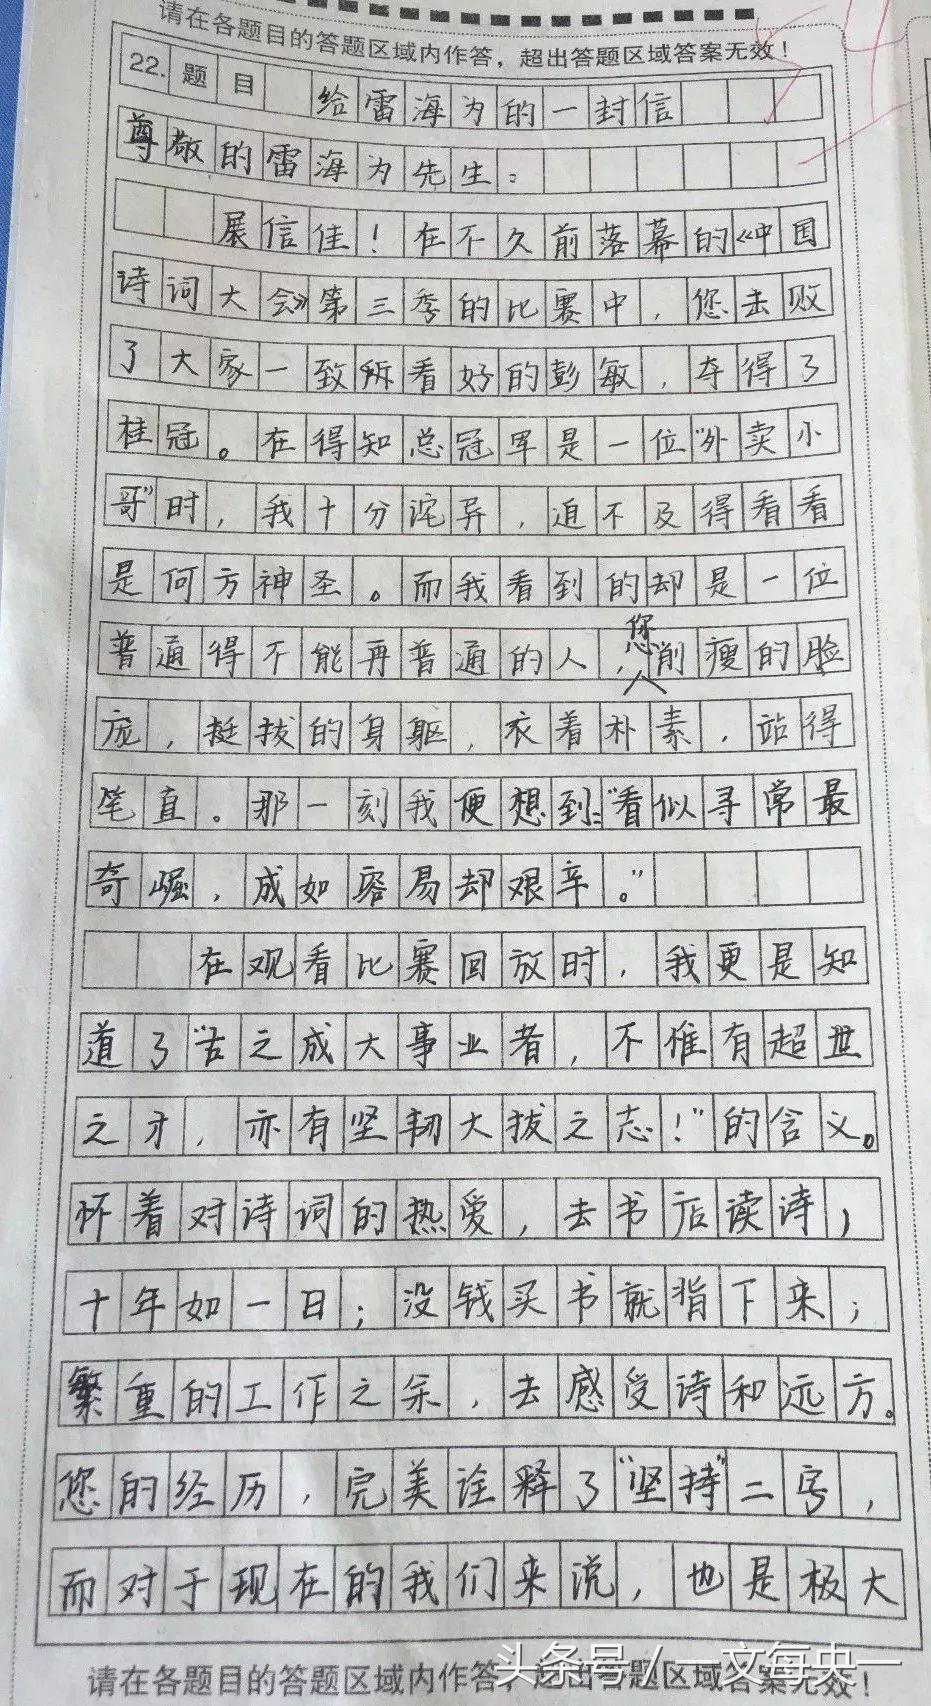 请在各题目的答题区域内作答，超出答题区域答案无效！
22. 题目 给雷海为的一封信
尊敬的雷海为先生：
展信佳！在不久前落幕的《中国
诗词大会》第三季的比赛中，您击败
了大家一致所看好的彭敏，夺得了
桂冠。在得知总冠军是一位“外卖小
哥”时，我十分诧异，迫不及得看看
是何方神圣。而我看到的却是一位
普通得不能再普通的人，您削瘦的脸
庞，挺拔的身躯，衣着朴素，站得
笔直。那一刻我便想到：“看似寻常最
奇崛，成如容易却艰辛。”
在观看比赛回放时，我更是知
道了“古之成大事业者，不惟有超世
之才，亦有坚韧大拔之志！”的含义。
怀着对诗词的热爱，去书店读诗，
十年如一日；没钱买书就背下来；
繁重的工作之余，去感受诗和远方。
您的经历，完美诠释了“坚持”二字，
而对于现在的我们来说，也是极大
请在各题目的答题区域内作答，超出答题区域答案无效！
头条号／一文每央一